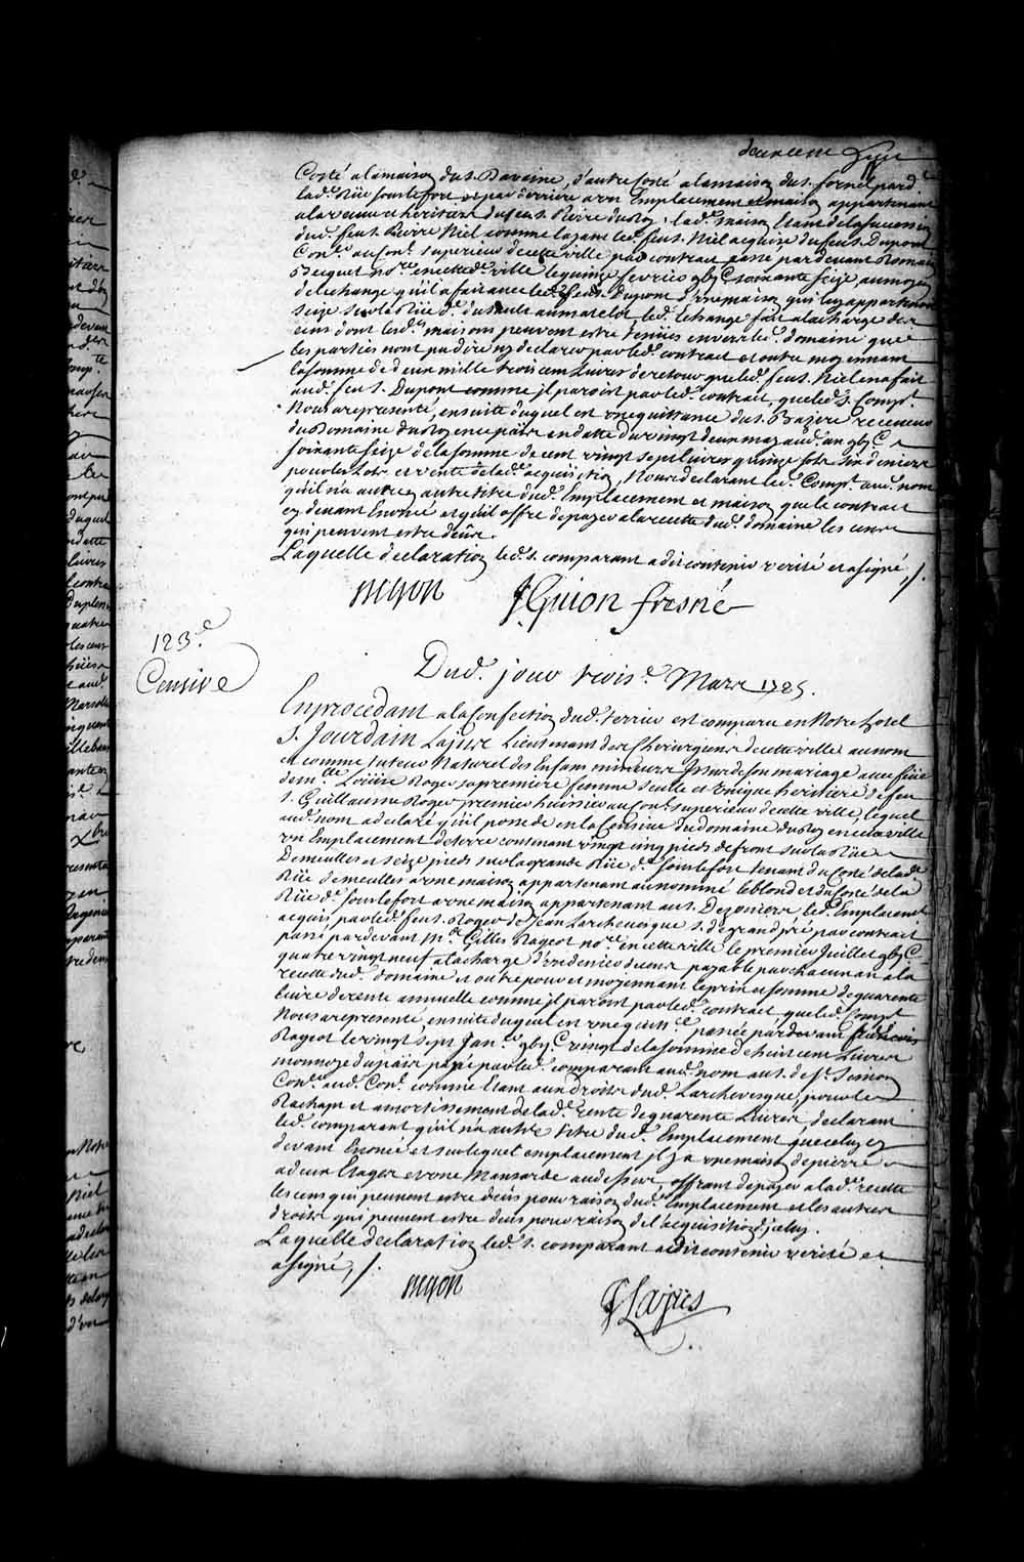 Costé a la maison du s. Davaine, d'autre Costé a la maison du s. fornel par d.
lad.e Rüe sous le fort et par derriere a un Emplacement et maison appartenant
a la veuve et heritiers du feu s. Pierre du Roy, lad.e maison Etant de la succession
dud. feu s. Pierre Niel comme layant led. feu s. Niel acquise du feu s. Dupont
Con.er au Con.l superieur de cette ville par contrat passé par devant Romain
Becquet no.re en cetted.e ville le quinze fevrier gbyC soixante seize au moyen
de lechange qu'il a fait avec led. feu s. Dupont d'une maison qui luy appartenoit
size sur la Rüe du sault au matelot, led. Echange fait a la charge des
cens dont lesd.es maisons peuvent estre tenües envers led. domaine que
les parties nont pu dire ny declarer par led. contrat et outre moyennant
la somme de deux mille trois cens Livres de retour que led. feu s. Niel en a fait
aud. feu s. Dupont comme jl paroist par led. contrat, que led. s. Comp.t
Nous a representé, ensuite duquel est une quittance du s. Bazire receveur
du Domaine du Roy en ce païs en datte du vingt deux may aud. an gbyC
soixante seize de la somme de cent vingt sept livres quinze sols six deniers
pour les lots et vente de lad.e acquisition, Nous declarant led. Comp.t aud. nom
qu'il n'a autre titre dud. Emplacement et maison que le contract
cy devant Enoncé et qu'il offre de payer a la recette dud. domaine les cens
qui peuvent estre deüs.
Laquelle declaration led. s. comparant a dit contenir verité et a signé, /.
JGuion fresné
123.e
Censive
Dud. jour trois.e Mars 1725.
En procedant a la Confection dud. terrier est comparu en Notre hotel
S. Jourdain Lajus Lieutenant des Chirurgiens de cette ville au nom
et comme tuteur Naturel des Enfans mineurs Issus de son mariage avec feüe
dem.lle Loüise Roger sa premiere femme seulle et Unique heritiere de feu
s. Guillaume Roger premier huissier au Con.l superieur de cette ville, lequel
aud. nom a declaré qu'il possede en la Censive du domaine du Roy en cette ville
un Emplacement de terre contenant vingt cinq pieds de front sur la Rüe
Demeulles et seize pieds sur la grande Rüe d.e sous le fort tenant du Costé de lad.e
Rüe demeulles a une maison appartenant au nommé leblond et du Costé de la
Rüe d.e sous le fort a une maison appartenant au s. Dezoniers, led. Emplacement
acquis par led. feu s. Roger de Jean Larchevesque s. de grand pré par contrat
passé par devant M.e Gilles Rageot no.re en cette ville le premier Juillet gbyC
quatre vingt neuf a la charge d'un denier de cens payable par chacun an a la
recette dud. domaine et outre pour et moyennant le prix et somme de quarente
livres de rente annuelle comme jl paroist par led. contract que led. Comp.t
Nous a representé, ensuite duquel est une quitt.ce passée par devant
Rageot le vingt sept Jan.er gbyC vingt de la somme de huit cent Livres
monnoye du païs payé par led. comparant aud. nom au s. de St. Simon
Con.er aud. Con.l comme Etant aux droits dud. Larchevesque, pour le
Rachapt et amortissement de lad.e rente de quarente Livres, declarant
led. comparant qu'il n'a autre titre dud. Emplacement que celuy cy
devant Enoncé et sur lequel emplacement jl y a une maison de pierre
a deux Etages et une mansarde au dessus, offrant de payer a lad.e recette
les cens qui peuvent estre deüs pour raison dud. Emplacement et les autres
droits qui peuvent estre deüs pour raison de l'acquisition d'jceluy.
Laquelle declaration led. s. comparant a dit contenir verité et
a signé, /.
JLajus